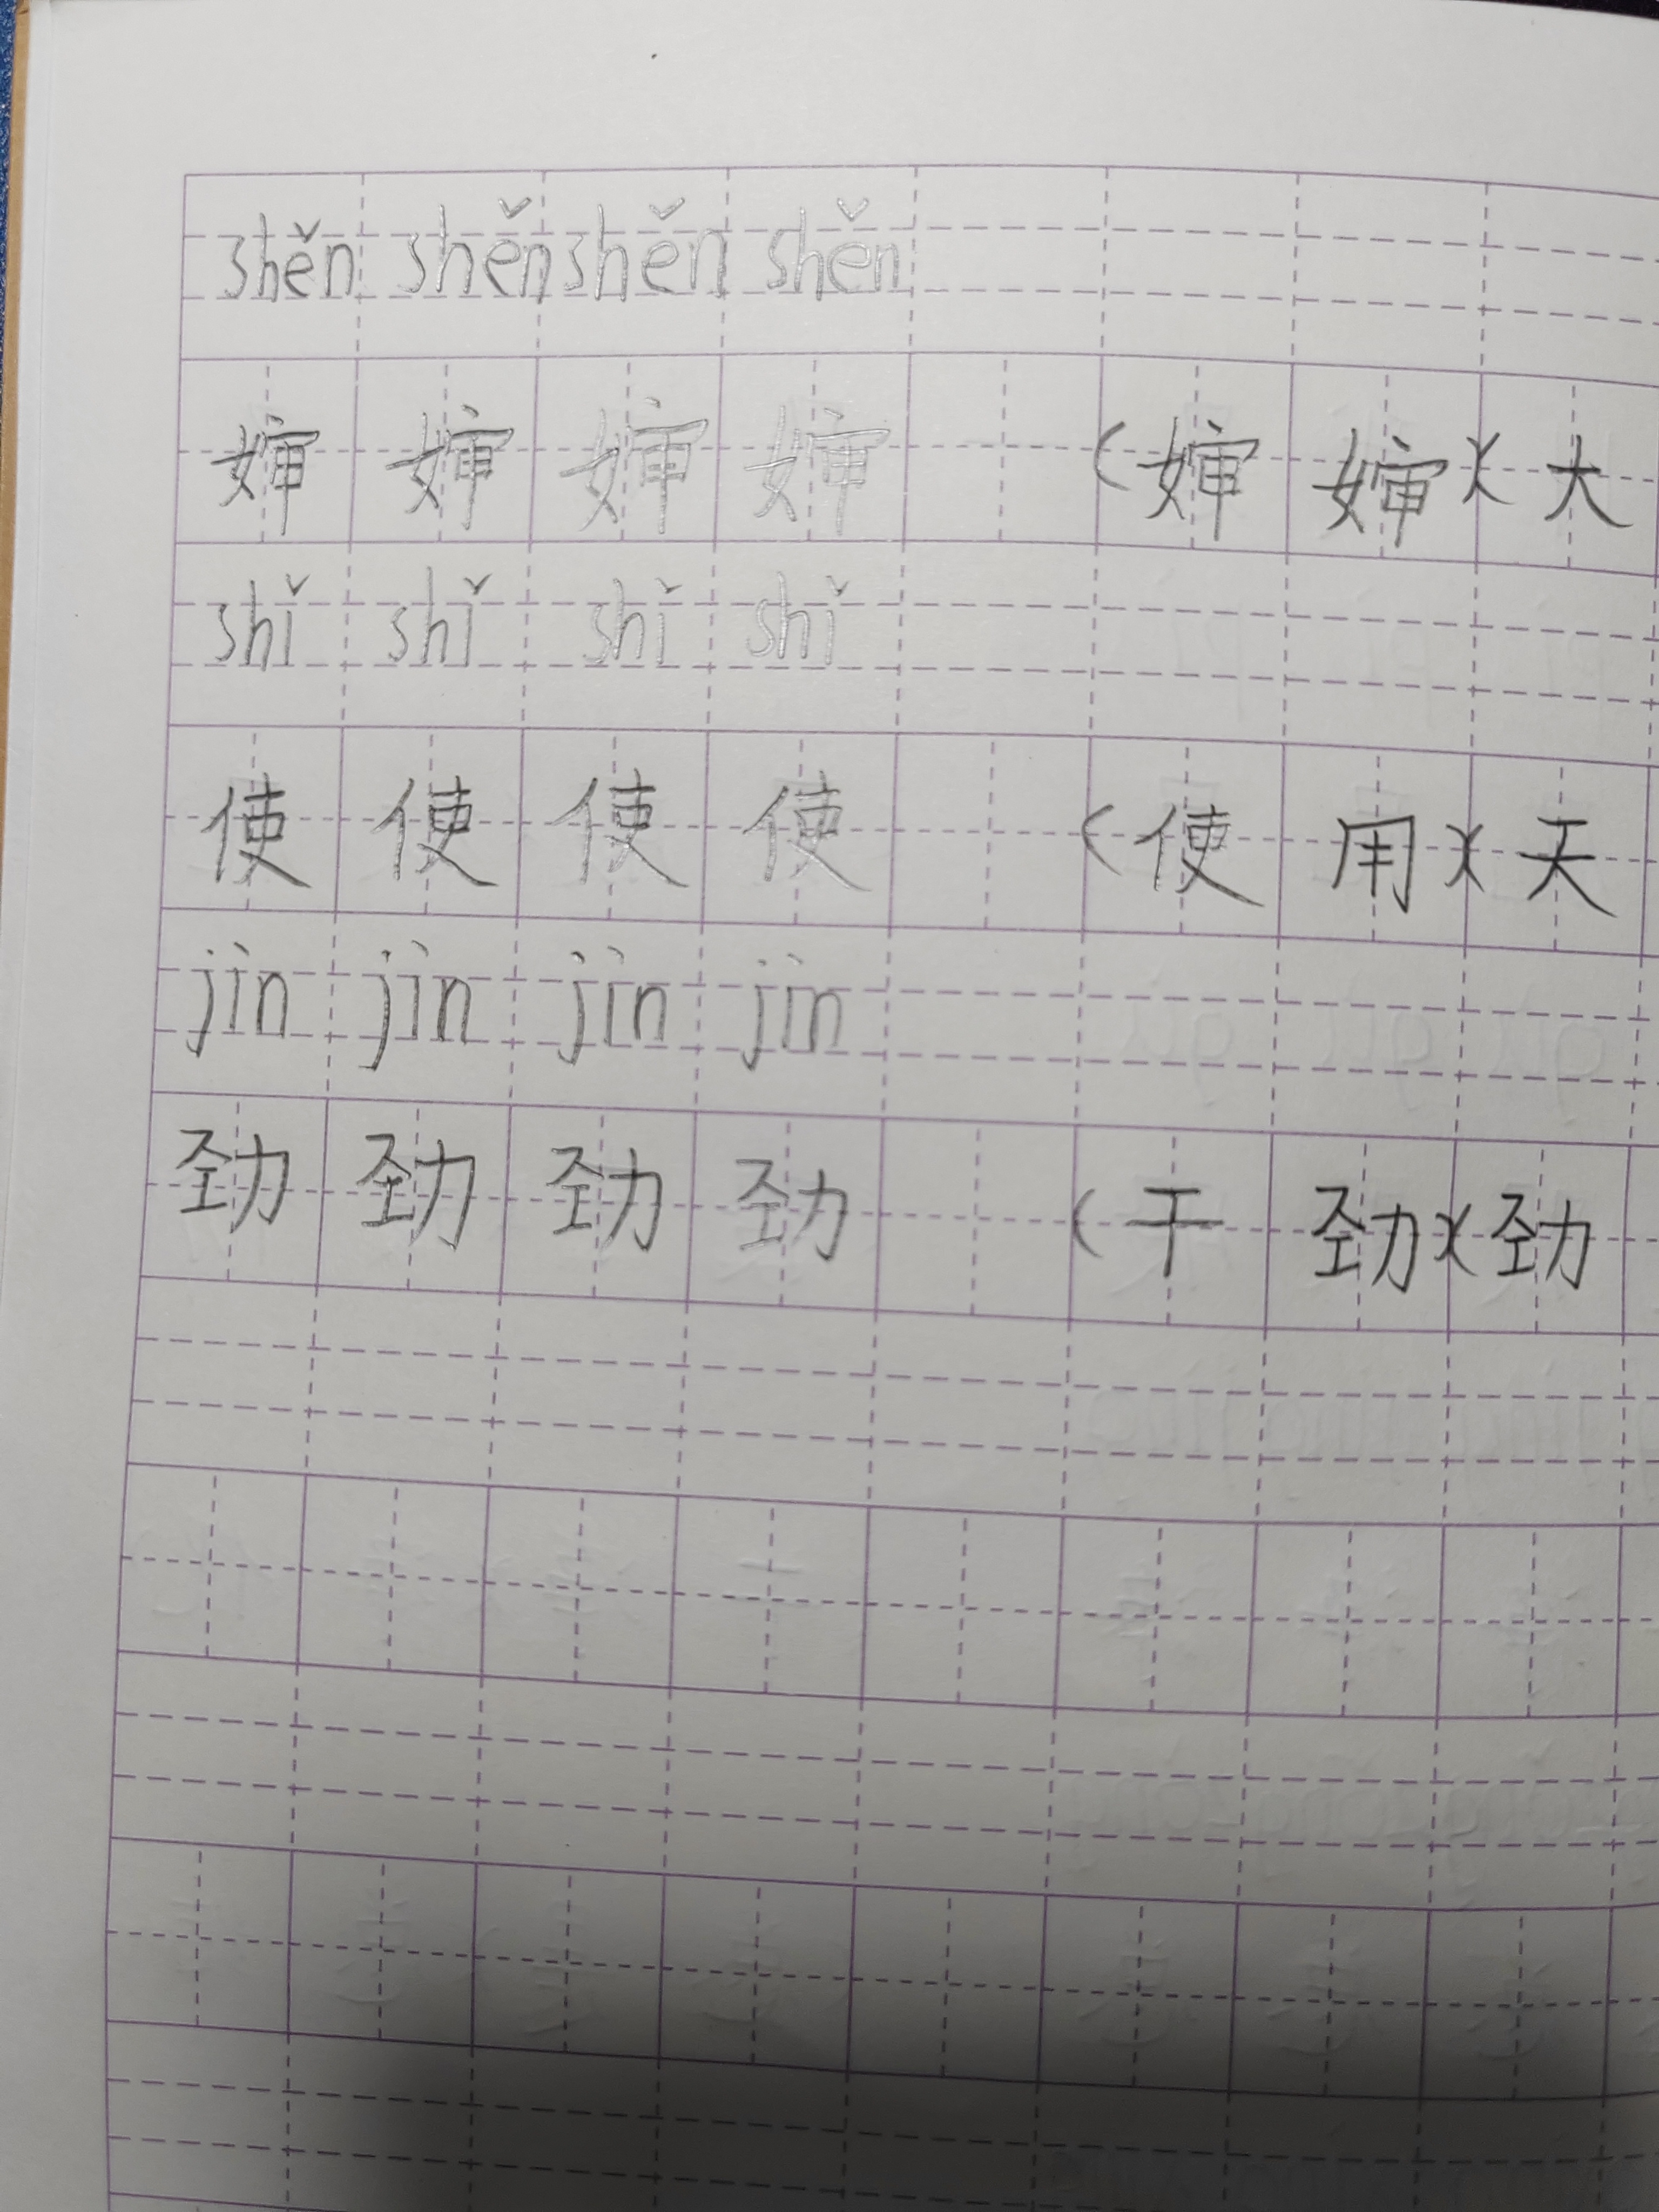 shěn shěn shěn shěn
婶 婶 婶 婶 (婶 婶)(大
shǐ shǐ shǐ shǐ
使 使 使 使 (使 用)(天
jìn jìn jìn jìn
劲 劲 劲 劲 (干 劲)(劲